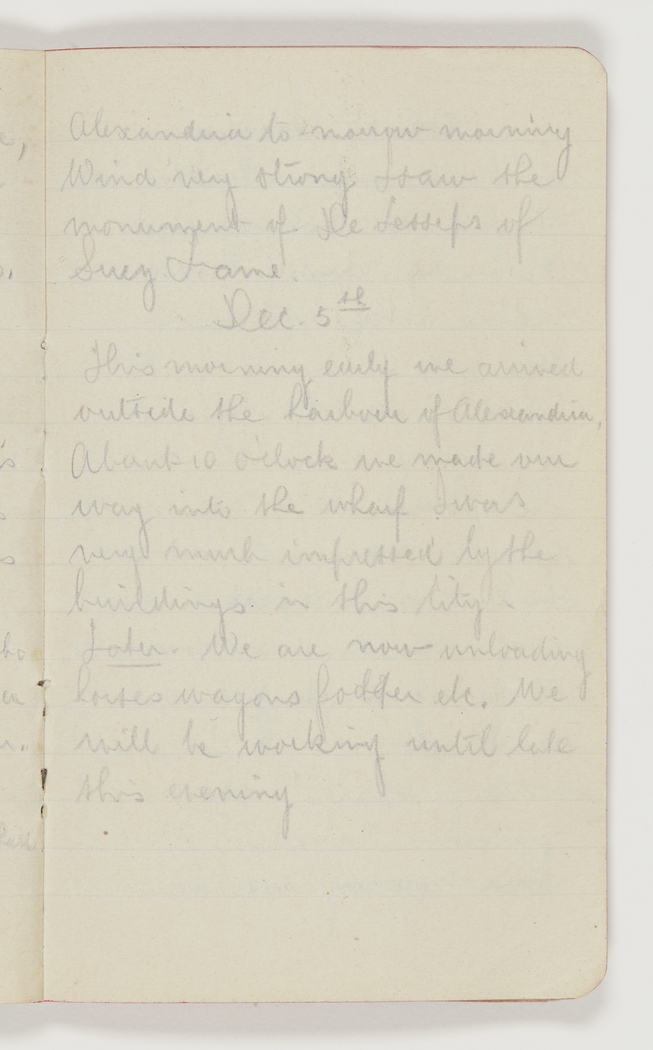 Alexandria to-morrow morning
Wind very strong I saw the
monument of De Lesseps of
Suez Fame.
Dec. 5th
This morning early we arrived
outside the harbour of Alexandria,
About 10 o'clock we made our
way into the wharf I was
very much impressed by the
buildings in this City.
Later. We are now unloading
horses wagons fodder etc. We
will be working until late
this evening